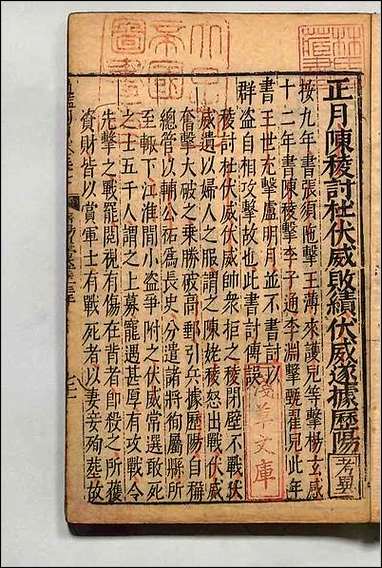 正月陳稜討杜伏威敗績伏威遂據歷陽考異
按九年書張須陁擊王薄來護兒等擊楊玄感
十二年書陳稜擊李子通李淵擊甄翟兒此年
書王世充擊盧明月並不書討以
群盜自相攻擊故也此書討傳誤
稜討杜伏威伏威帥衆拒之稜閉壁不戰伏
威遺以婦人之服謂之陳姥稜怒出戰伏威
奮擊大破之乗勝破高郵引兵據歷陽自稱
總管以輔公祏爲長史分遣諸將徇屬縣所
至輙下江淮間小盗爭附之伏威常選敢死
之士五千人謂之上募寵遇甚厚有攻戰令
先擊之戰罷閱視有傷在背者即殺之所獲
資財皆以賞軍士有戰死者以妻妾殉葬故
淺草文庫
大日本
帝國
圖書